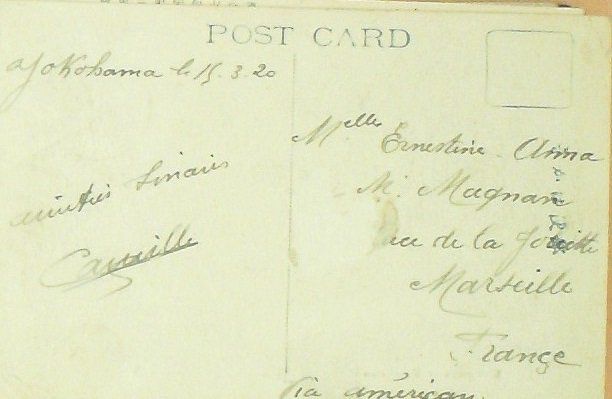 POST CARD
Yokohama le 15.3.20
amitiés
Camille
Melles Ernestine Anna
M. Magnan
de la Joliette
Marseille
France
Via américan